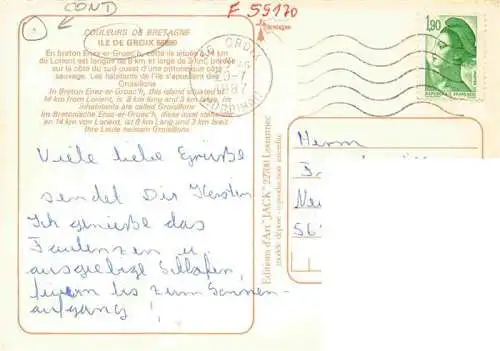 CONT
F 59170
COULEURS DE BRETAGNE
ILE DE GROIX 56590
En breton Enez-er-Groac'h, cette île située à 14 km
du Lorient est longue de 8 km et large de 3 km, bordée
sur la côte du sud-ouest d'une pittoresque côte
sauvage. Les habitants de l'île s'appellent des
Groisillons
In Breton Enez-er-Groac'h, this island situated at
14 km from Lorient, is 8 km long and 3 km large, its
inhabitants are called Groisillons
Im Bretonische Enez-er-Groac'h, diese Insel
en 14 km von Lorient, ist 8 km Lang und 3 km breit
Ihre Leute heissen Groisillons
GROIX
1987
MORBIHAN
1,90
RÉPUBLIQUE FRANÇAISE
Viele liebe Grüße
sendet Dir Kerstin
Ich genieße das
Faulenzen u.
ausgiebige Schlafen,
feiern bis zum Sonnen-
aufgang!
Editions d'Art "JACK" 22700 Louannec
modèle déposé - reproduction interdite
Herrn
56